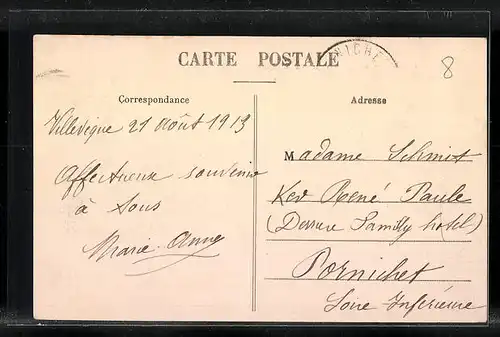 CARTE POSTALE
NICHE
8
Correspondance
Adresse
Villevêque 21 Août 1913
Affectueux souvenir
à tous
Marie Anne
Madame Schmit
Ker René Paule
(Derrière Familly hotel)
Pornichet
Loire Inférieure